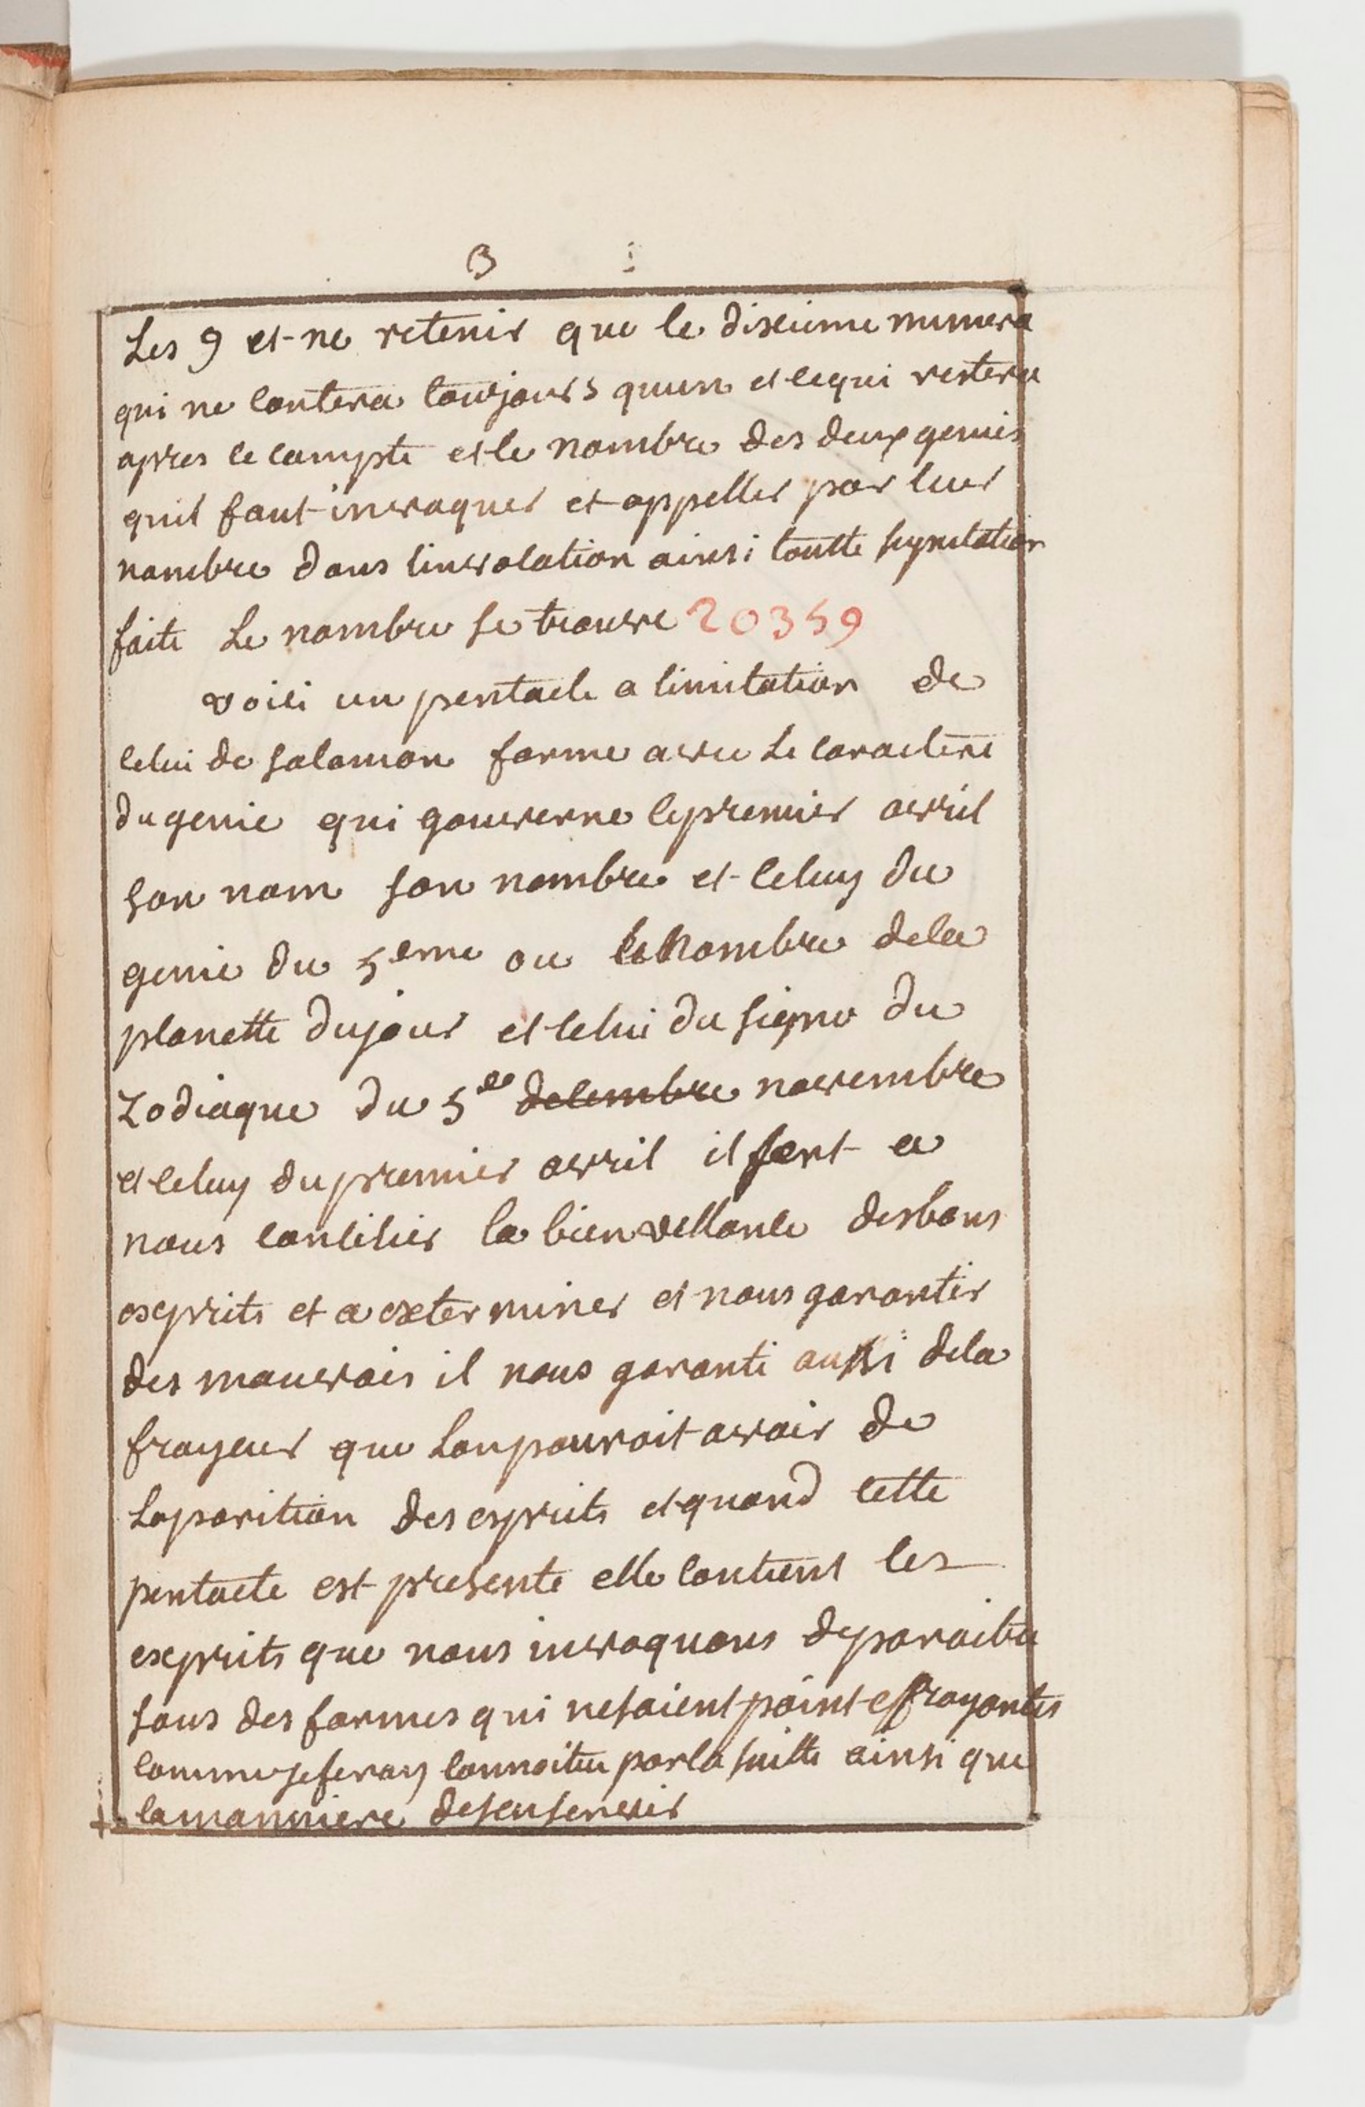 3
Les 9 et ne retenir que le dixieme numera
qui ne contera toujours quun et cequi restera
apres ce compte est le nombre des deux genies
quil faut invoquer et appeller par leur
nombre dans linvocation ainsi toutte suputation
faite Le nombre se trouve 20359
voici un pentacle a limitation de
celui de salomon forme avec Le caractere
du genie qui gouverne lepremier avril
son nom son nombre et celuy du
genie du 5eme ou le Nombre dela
planette dujour et celui du signe du
Zodiaque du 5e decembre novembre
et celuy dupremier avril il sert a
nous concilier la bienvellance desbons
esprits et a exterminer et nous garantir
des mauvais il nous garanti aussi dela
frayeur que Lonpouroit avoir de
Laparition des esprits et quand cette
pentacle est presente elle contient les
esprits que nous invoquons deparaitre
sous des formes qui nesoient point effrayantes
comme jeferay connoitre parla suitte ainsi que
lamanniere desenservir